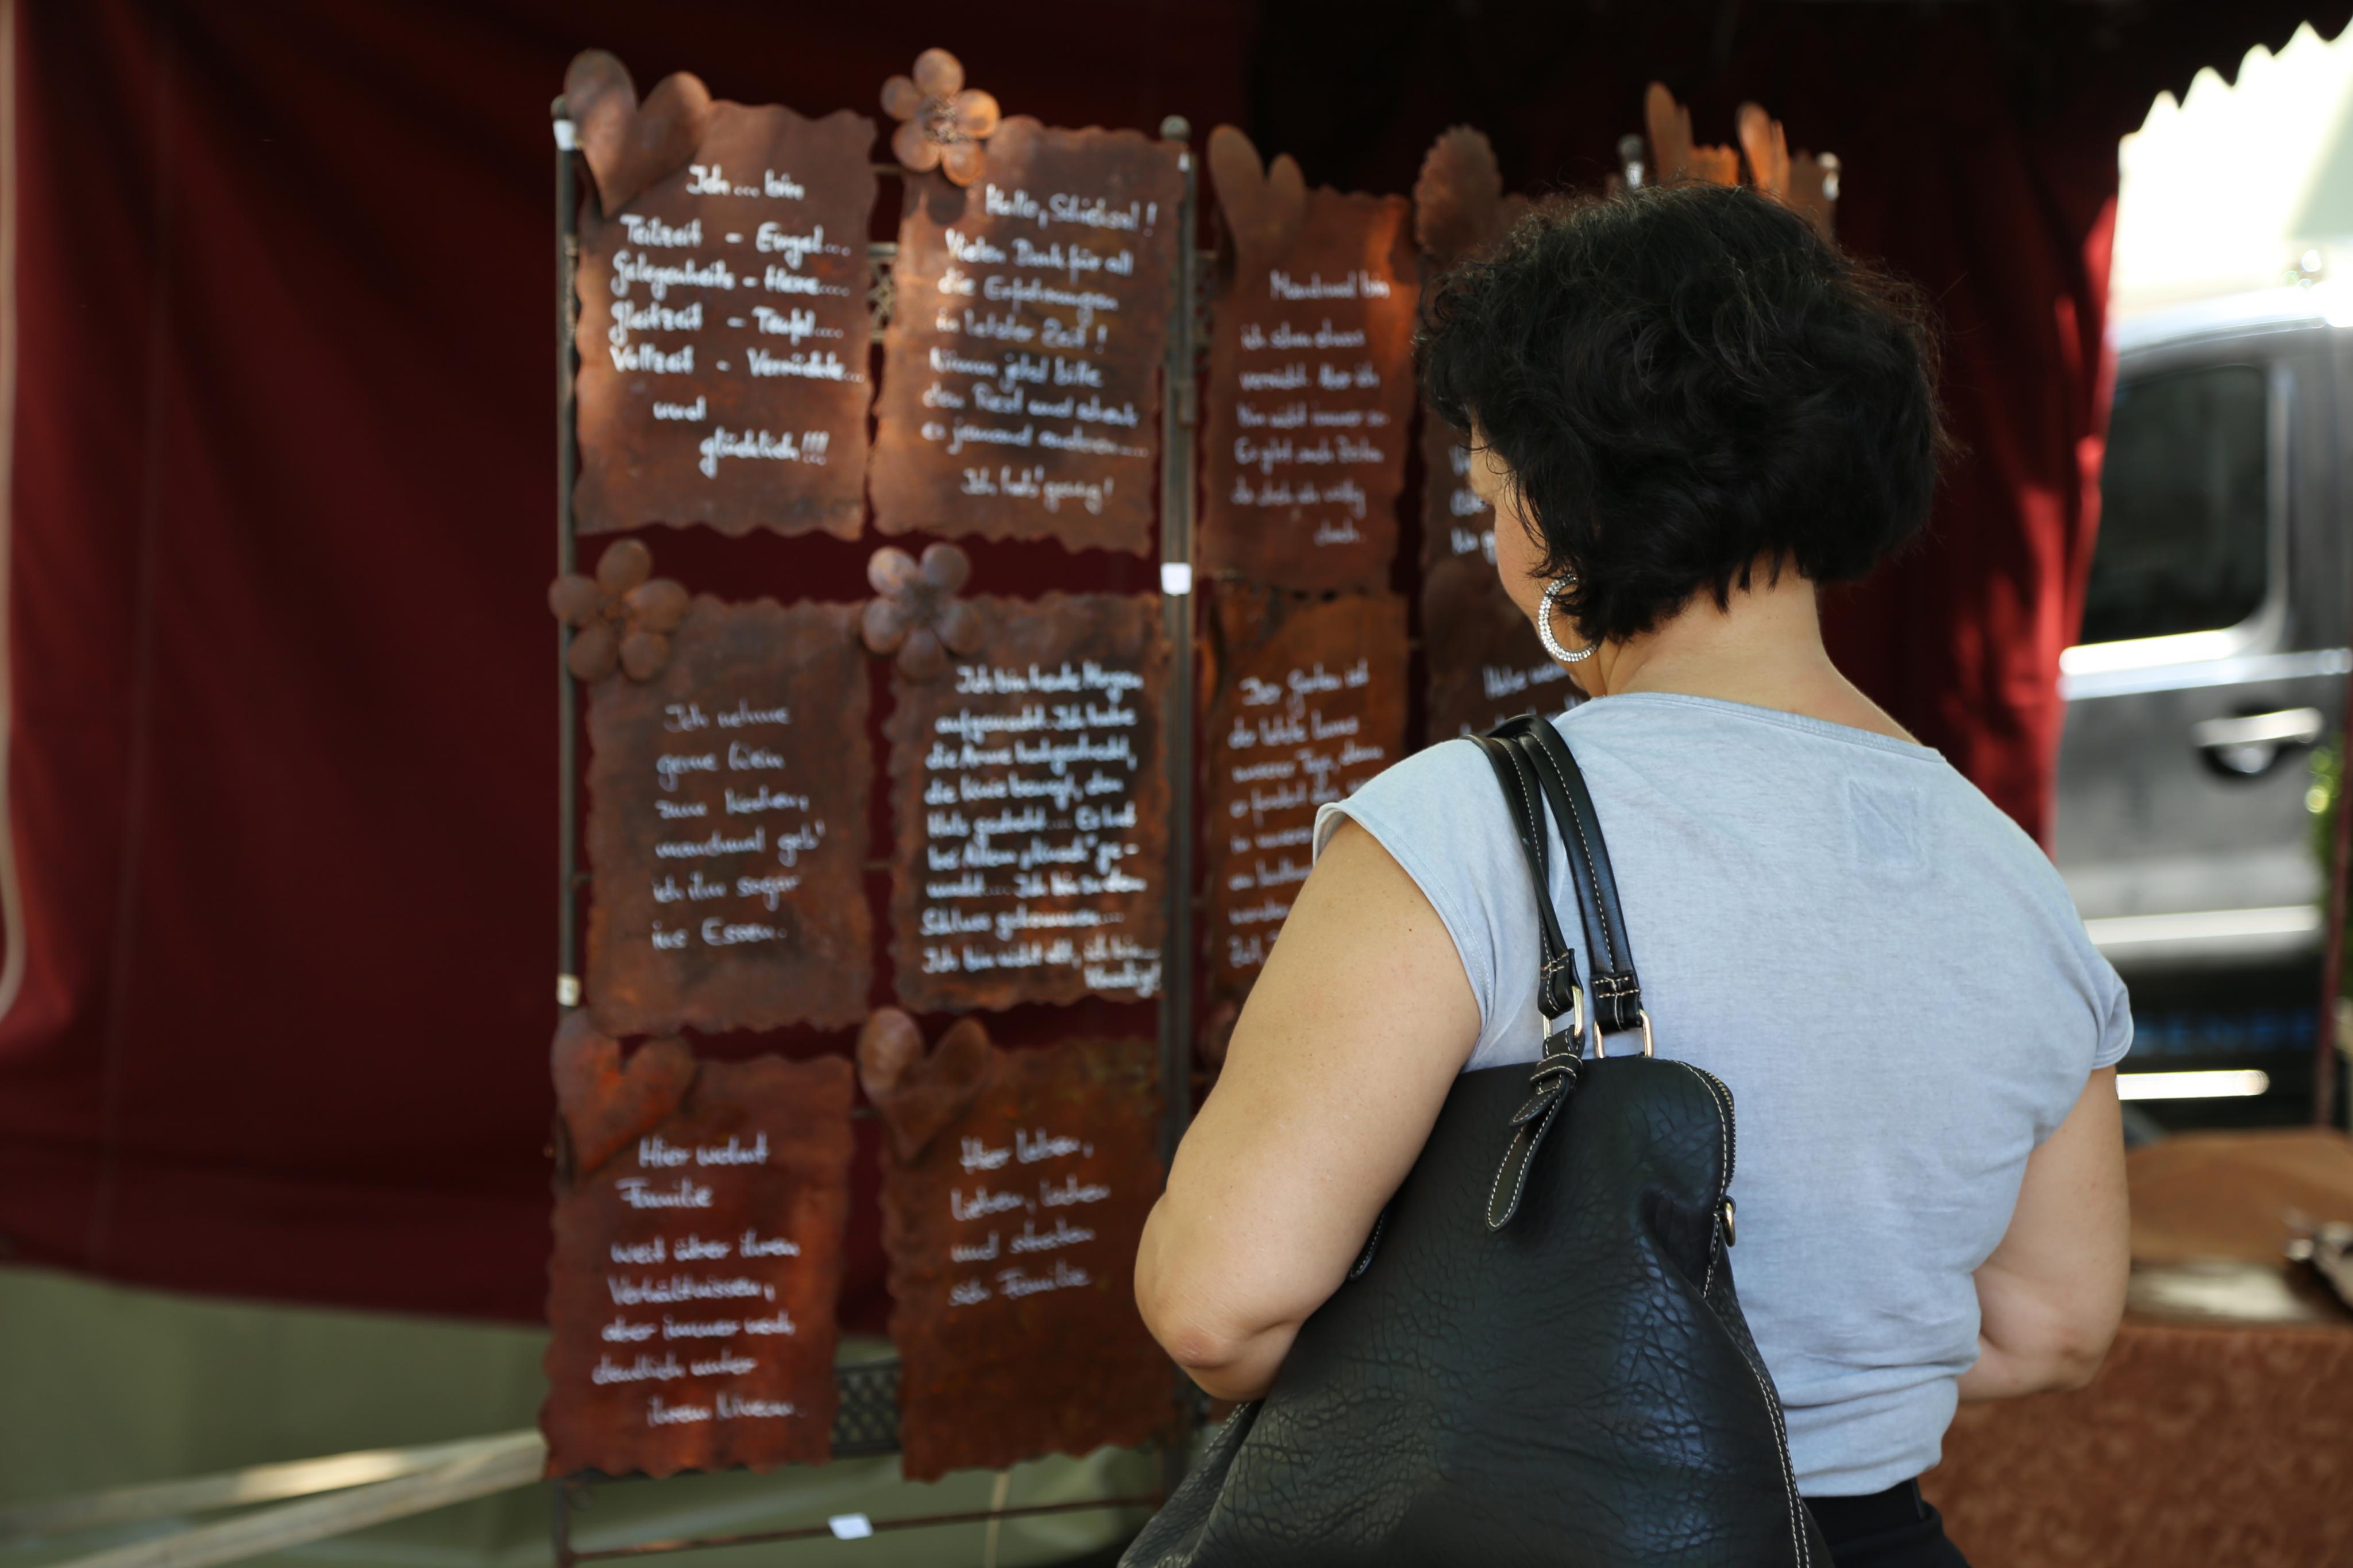 Ich... bin
Teilzeit - Engel...
Gelegenheits - Hexe....
Gleitzeit - Teufel....
Vollzeit - Verrückte...
und
glücklich!!!
Hallo, Schicksal!
Vielen Dank für all
die Erfahrungen
in letzter Zeit!
Nimm jetzt bitte
den Rest und schenk
es jemand anderen....
Ich hab' genug!
Manchmal bin
ich schon etwas
verrückt. Aber ich
bin nicht immer so
Es gibt auch Zeiten
da dreh ich völlig
durch.
Ich nehme
gerne Wein
zum Kochen,
manchmal geb'
ich ihn sogar
ins Essen.
Ich bin heute Morgen
aufgewacht. Ich habe
die Arme hochgestreckt,
die Knie bewegt, den
Hals gedreht.... Es hat
bei Allem „Knack" ge-
macht.... Ich bin zu dem
Schluss gekommen....
Ich bin nicht alt, ich bin...
Knusprig!
Der Garten ist
der letzte Luxus
unserer Tage, denn
er fordert das,
in unserer
am kostbarsten
Hier wohnt
Familie
weit über ihren
Verhältnissen,
aber immer noch
deutlich unter
ihrem Niveau.
Hier leben,
lieben, lachen
und streiten
sich Familie